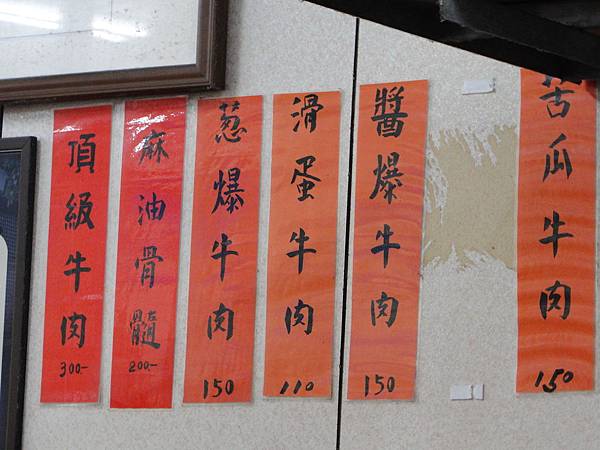 頂級牛肉 300-
麻油骨髓 200-
葱爆牛肉 150
滑蛋牛肉 110
醬爆牛肉 150
苦瓜牛肉 150